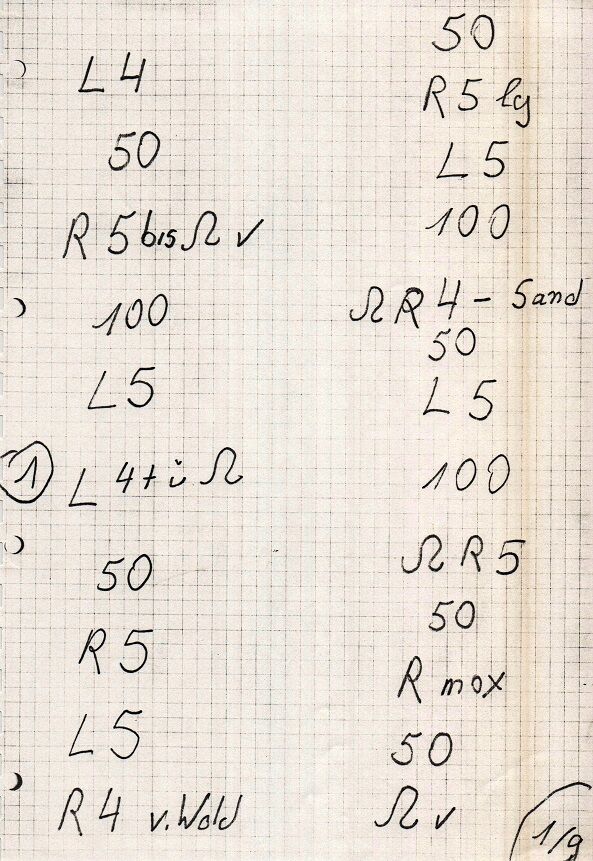 L 4
50
R 5 bis Ω v
100
L 5
1 L 4+ ü Ω
50
R 5
L 5
R 4 v. Wald
50
R 5 lg
L 5
100
Ω R 4 - Sand
50
L 5
100
Ω R 5
50
R max
50
Ω v
1/9